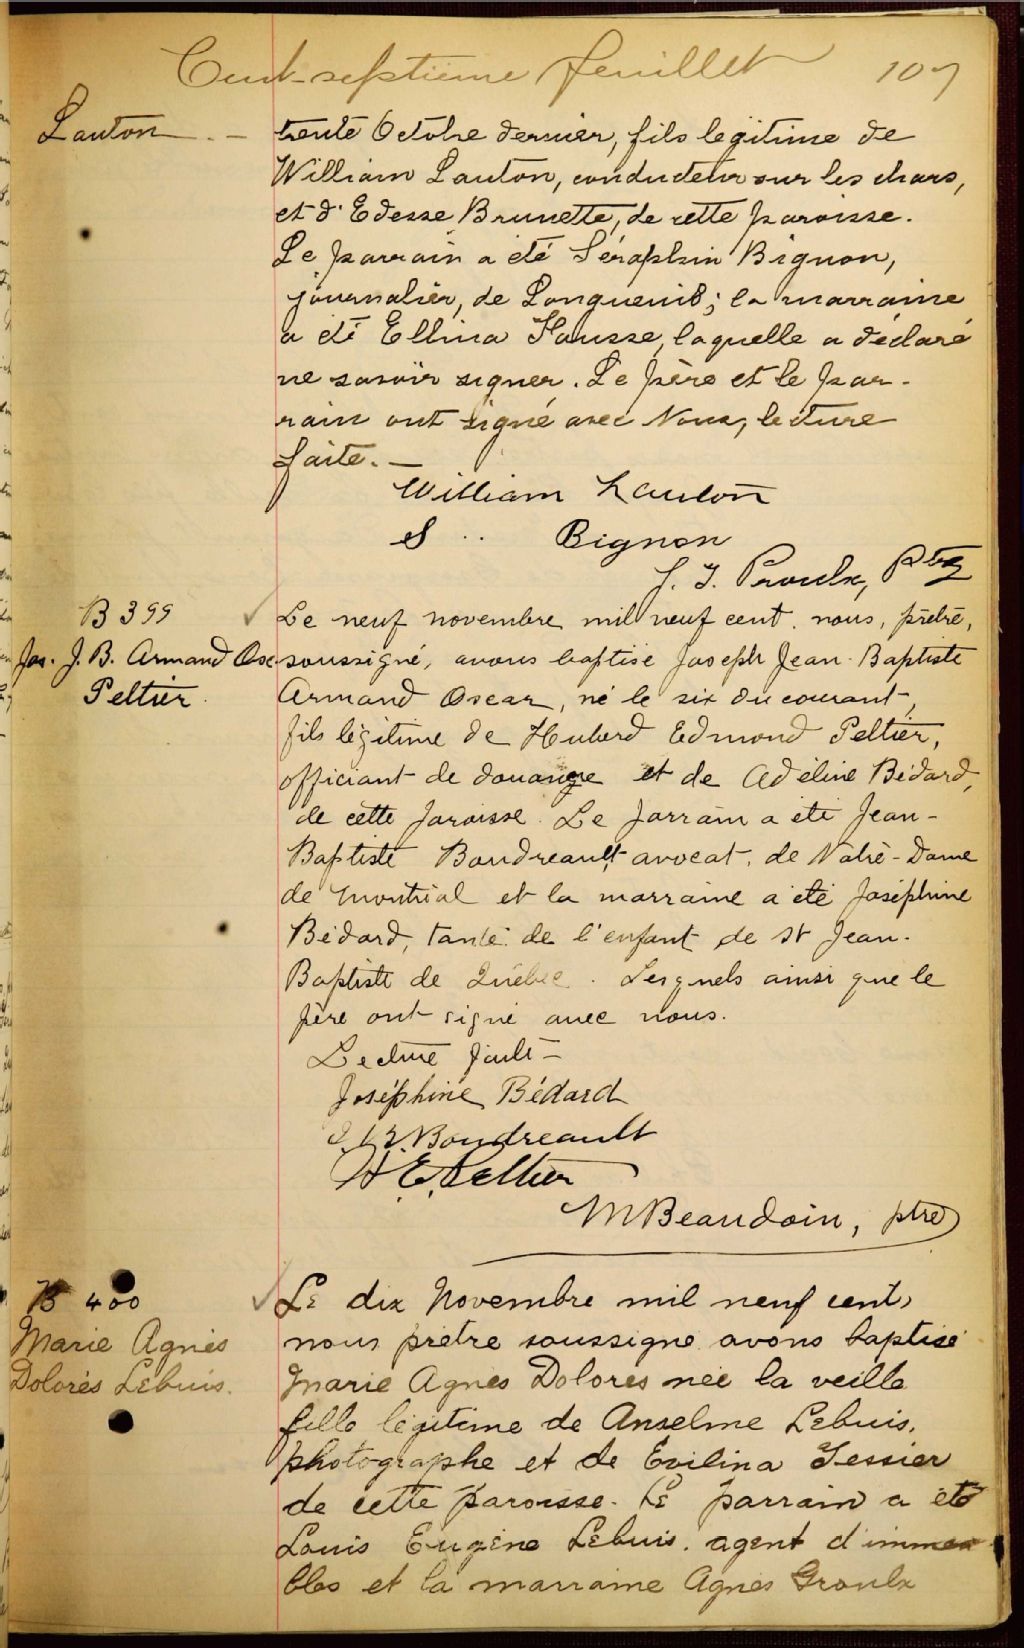 Cent-septième feuillet 107
Lauton. — trente Octobre dernier, fils légitime de
William Lauton, conducteur sur les chars,
et d'Edesse Brunette, de cette paroisse.
Le parrain a été Séraphin Bignon,
journalier, de Longueuil; la marraine
a été Ellina Hausse, laquelle a déclaré
ne savoir signer. Le père et le par-
rain ont signé avec Nous, lecture
faite. —
William Lauton
S .. Bignon
J. I. Proulx, Ptre
B 399 Le neuf novembre mil neuf cent, nous, prêtre,
Jos. J. B. Armand Osc soussigné, avons baptisé Joseph Jean-Baptiste
Peltier Armand Oscar, né le six du courant,
fils légitime de Huberd Edmond Peltier,
officiant de douange et de Adéline Bédard,
de cette paroisse. Le parrain a été Jean-
Baptiste Boudreault avocat, de Notre-Dame
de Montréal et la marraine a été Joséphine
Bédard, tante de l'enfant de St Jean-
Baptiste de Québec. Lesquels ainsi que le
père ont signé avec nous.
Lecture faite —
Joséphine Bédard
J. B. Boudreault
H. E. Peltier
M Beaudoin, ptre
B 400 Le dix Novembre mil neuf cent,
Marie Agnès nous prêtre soussigné avons baptisé
Dolorès Lebuis. Marie Agnès Dolorès née la veille
fille légitime de Anselme Lebuis,
photographe et de Evilina Tessier
de cette paroisse. Le parrain a été
Louis Eugène Lebuis, agent d'immeu
bles et la marraine Agnès Groulx